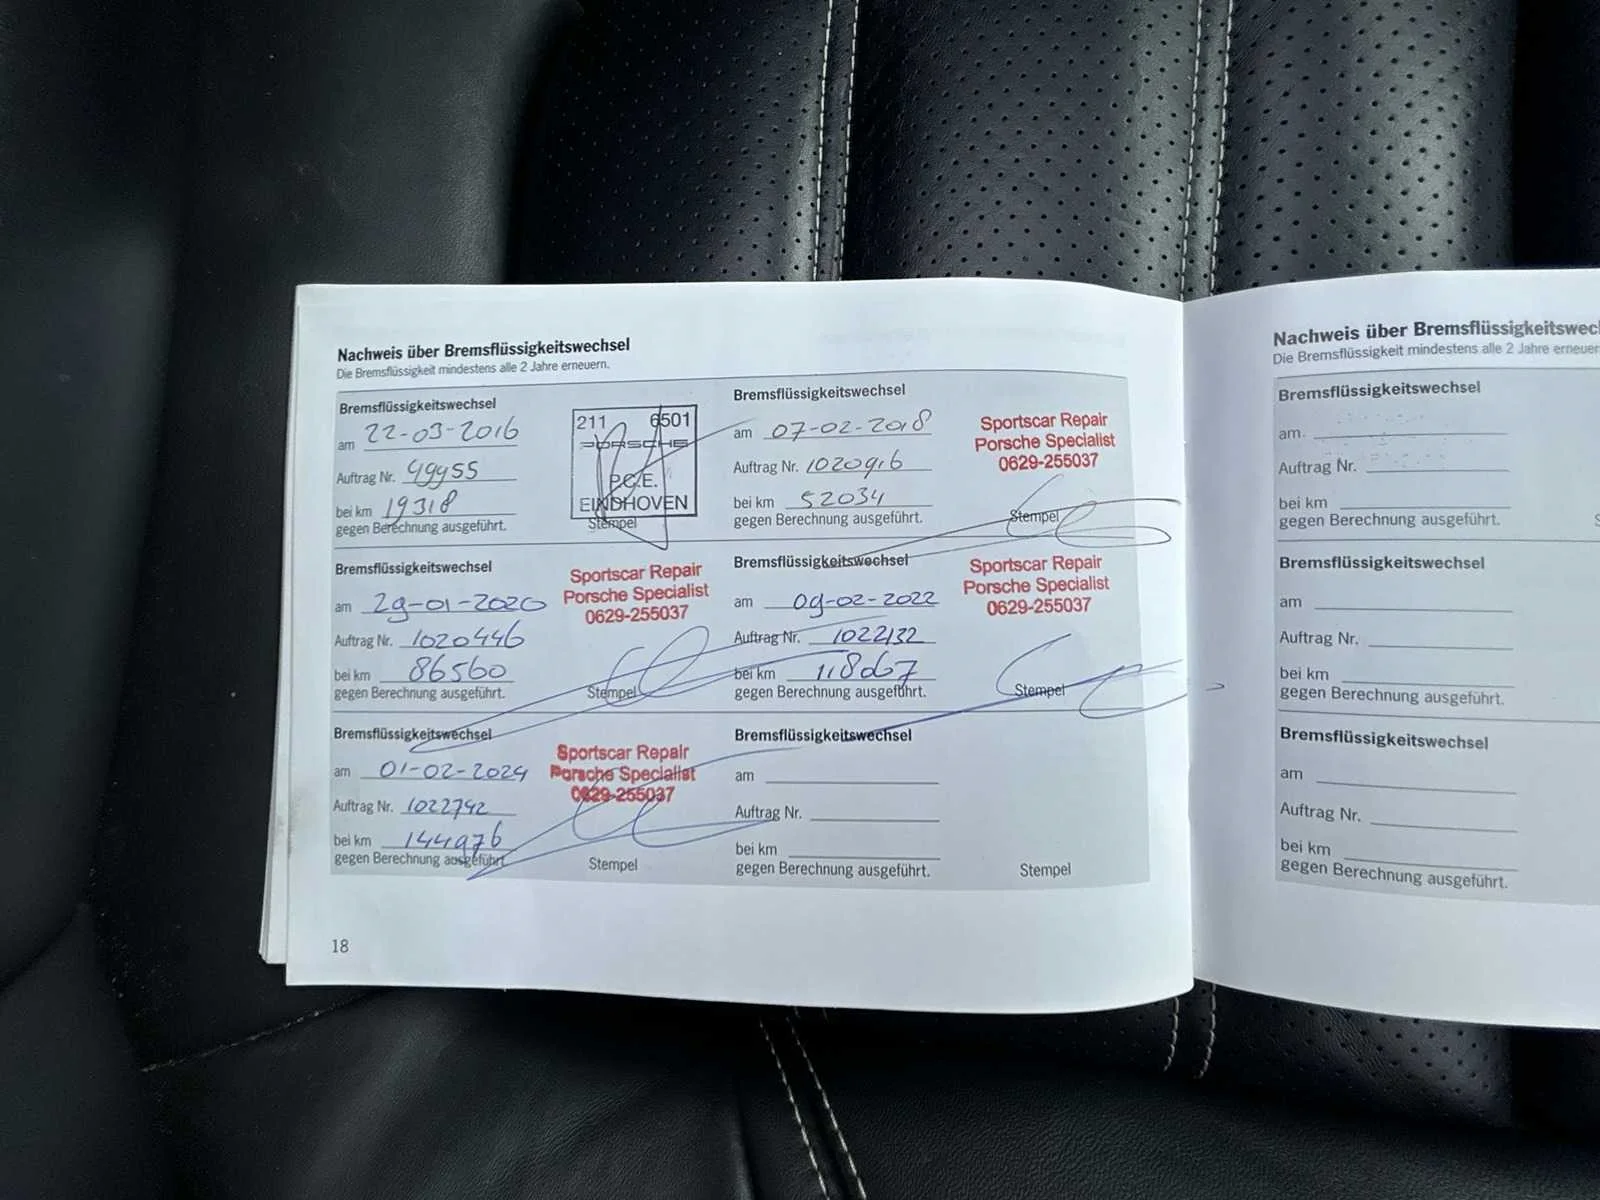 Nachweis über Bremsflüssigkeitswechsel
Die Bremsflüssigkeit mindestens alle 2 Jahre erneuern.
Bremsflüssigkeitswechsel
am 22-03-2016
Auftrag Nr. 49955
bei km 19318
gegen Berechnung ausgeführt.
211 6501
PORSCHE
P.C.E.
EINDHOVEN
Stempel
Bremsflüssigkeitswechsel
am 07-02-2018
Auftrag Nr. 1020916
bei km 52034
gegen Berechnung ausgeführt.
Sportscar Repair
Porsche Specialist
0629-255037
Stempel
Bremsflüssigkeitswechsel
am 29-01-2020
Auftrag Nr. 1020446
bei km 86560
gegen Berechnung ausgeführt.
Sportscar Repair
Porsche Specialist
0629-255037
Stempel
Bremsflüssigkeitswechsel
am 09-02-2022
Auftrag Nr. 1022132
bei km 118067
gegen Berechnung ausgeführt.
Sportscar Repair
Porsche Specialist
0629-255037
Stempel
Bremsflüssigkeitswechsel
am 01-02-2024
Auftrag Nr. 1022742
bei km 144976
gegen Berechnung ausgeführt.
Sportscar Repair
Porsche Specialist
0629-255037
Stempel
Bremsflüssigkeitswechsel
am
Auftrag Nr.
bei km
gegen Berechnung ausgeführt.
Stempel
18
Nachweis über Bremsflüssigkeitswec
Die Bremsflüssigkeit mindestens alle 2 Jahre erneuer
Bremsflüssigkeitswechsel
am
Auftrag Nr.
bei km
gegen Berechnung ausgeführt.
S
Bremsflüssigkeitswechsel
am
Auftrag Nr.
bei km
gegen Berechnung ausgeführt.
Bremsflüssigkeitswechsel
am
Auftrag Nr.
bei km
gegen Berechnung ausgeführt.